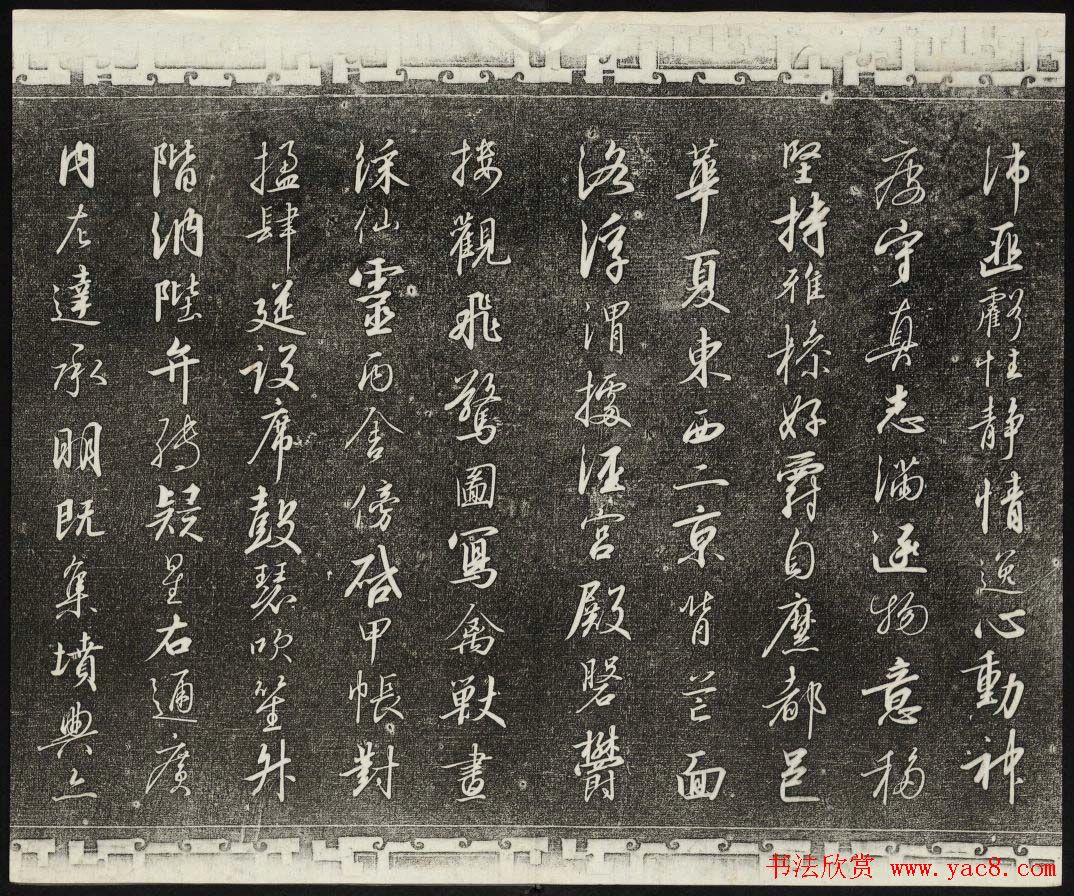 沛匪虧性静情逸心動神
疲守真志滿逐物意移
堅持雅操好爵自縻都邑
華夏東西二京背芒面
洛浮渭據涇宮殿磐欝
樓觀飛驚圖寫禽獸畫
綵仙靈丙舍傍啓甲帳對
楹肆筵設席鼓瑟吹笙升
階納陛弁轉疑星右通廣
内左達承明既集墳典亦
书法欣赏 www.yac8.com